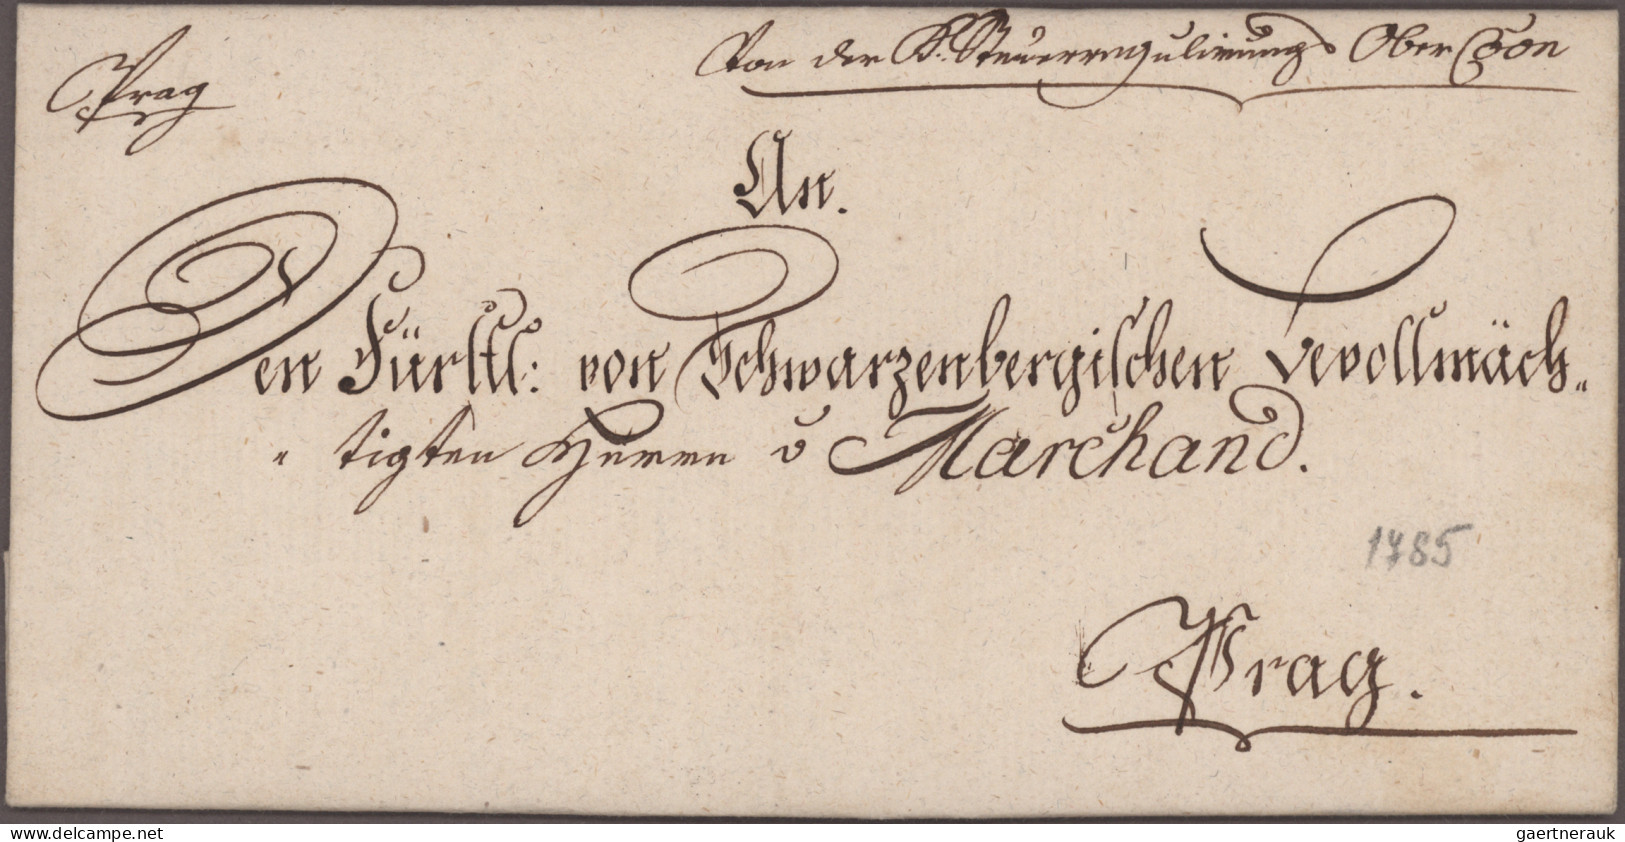 Prag
Von der K: Steuerregulirungs Ober Con
An.
Den Fürstl: von Schwarzenbergischen Bevollmäch„
„ tigten Herrn v Marchand.
1785
Prag.
www.delcampe.net
gaertnerauk